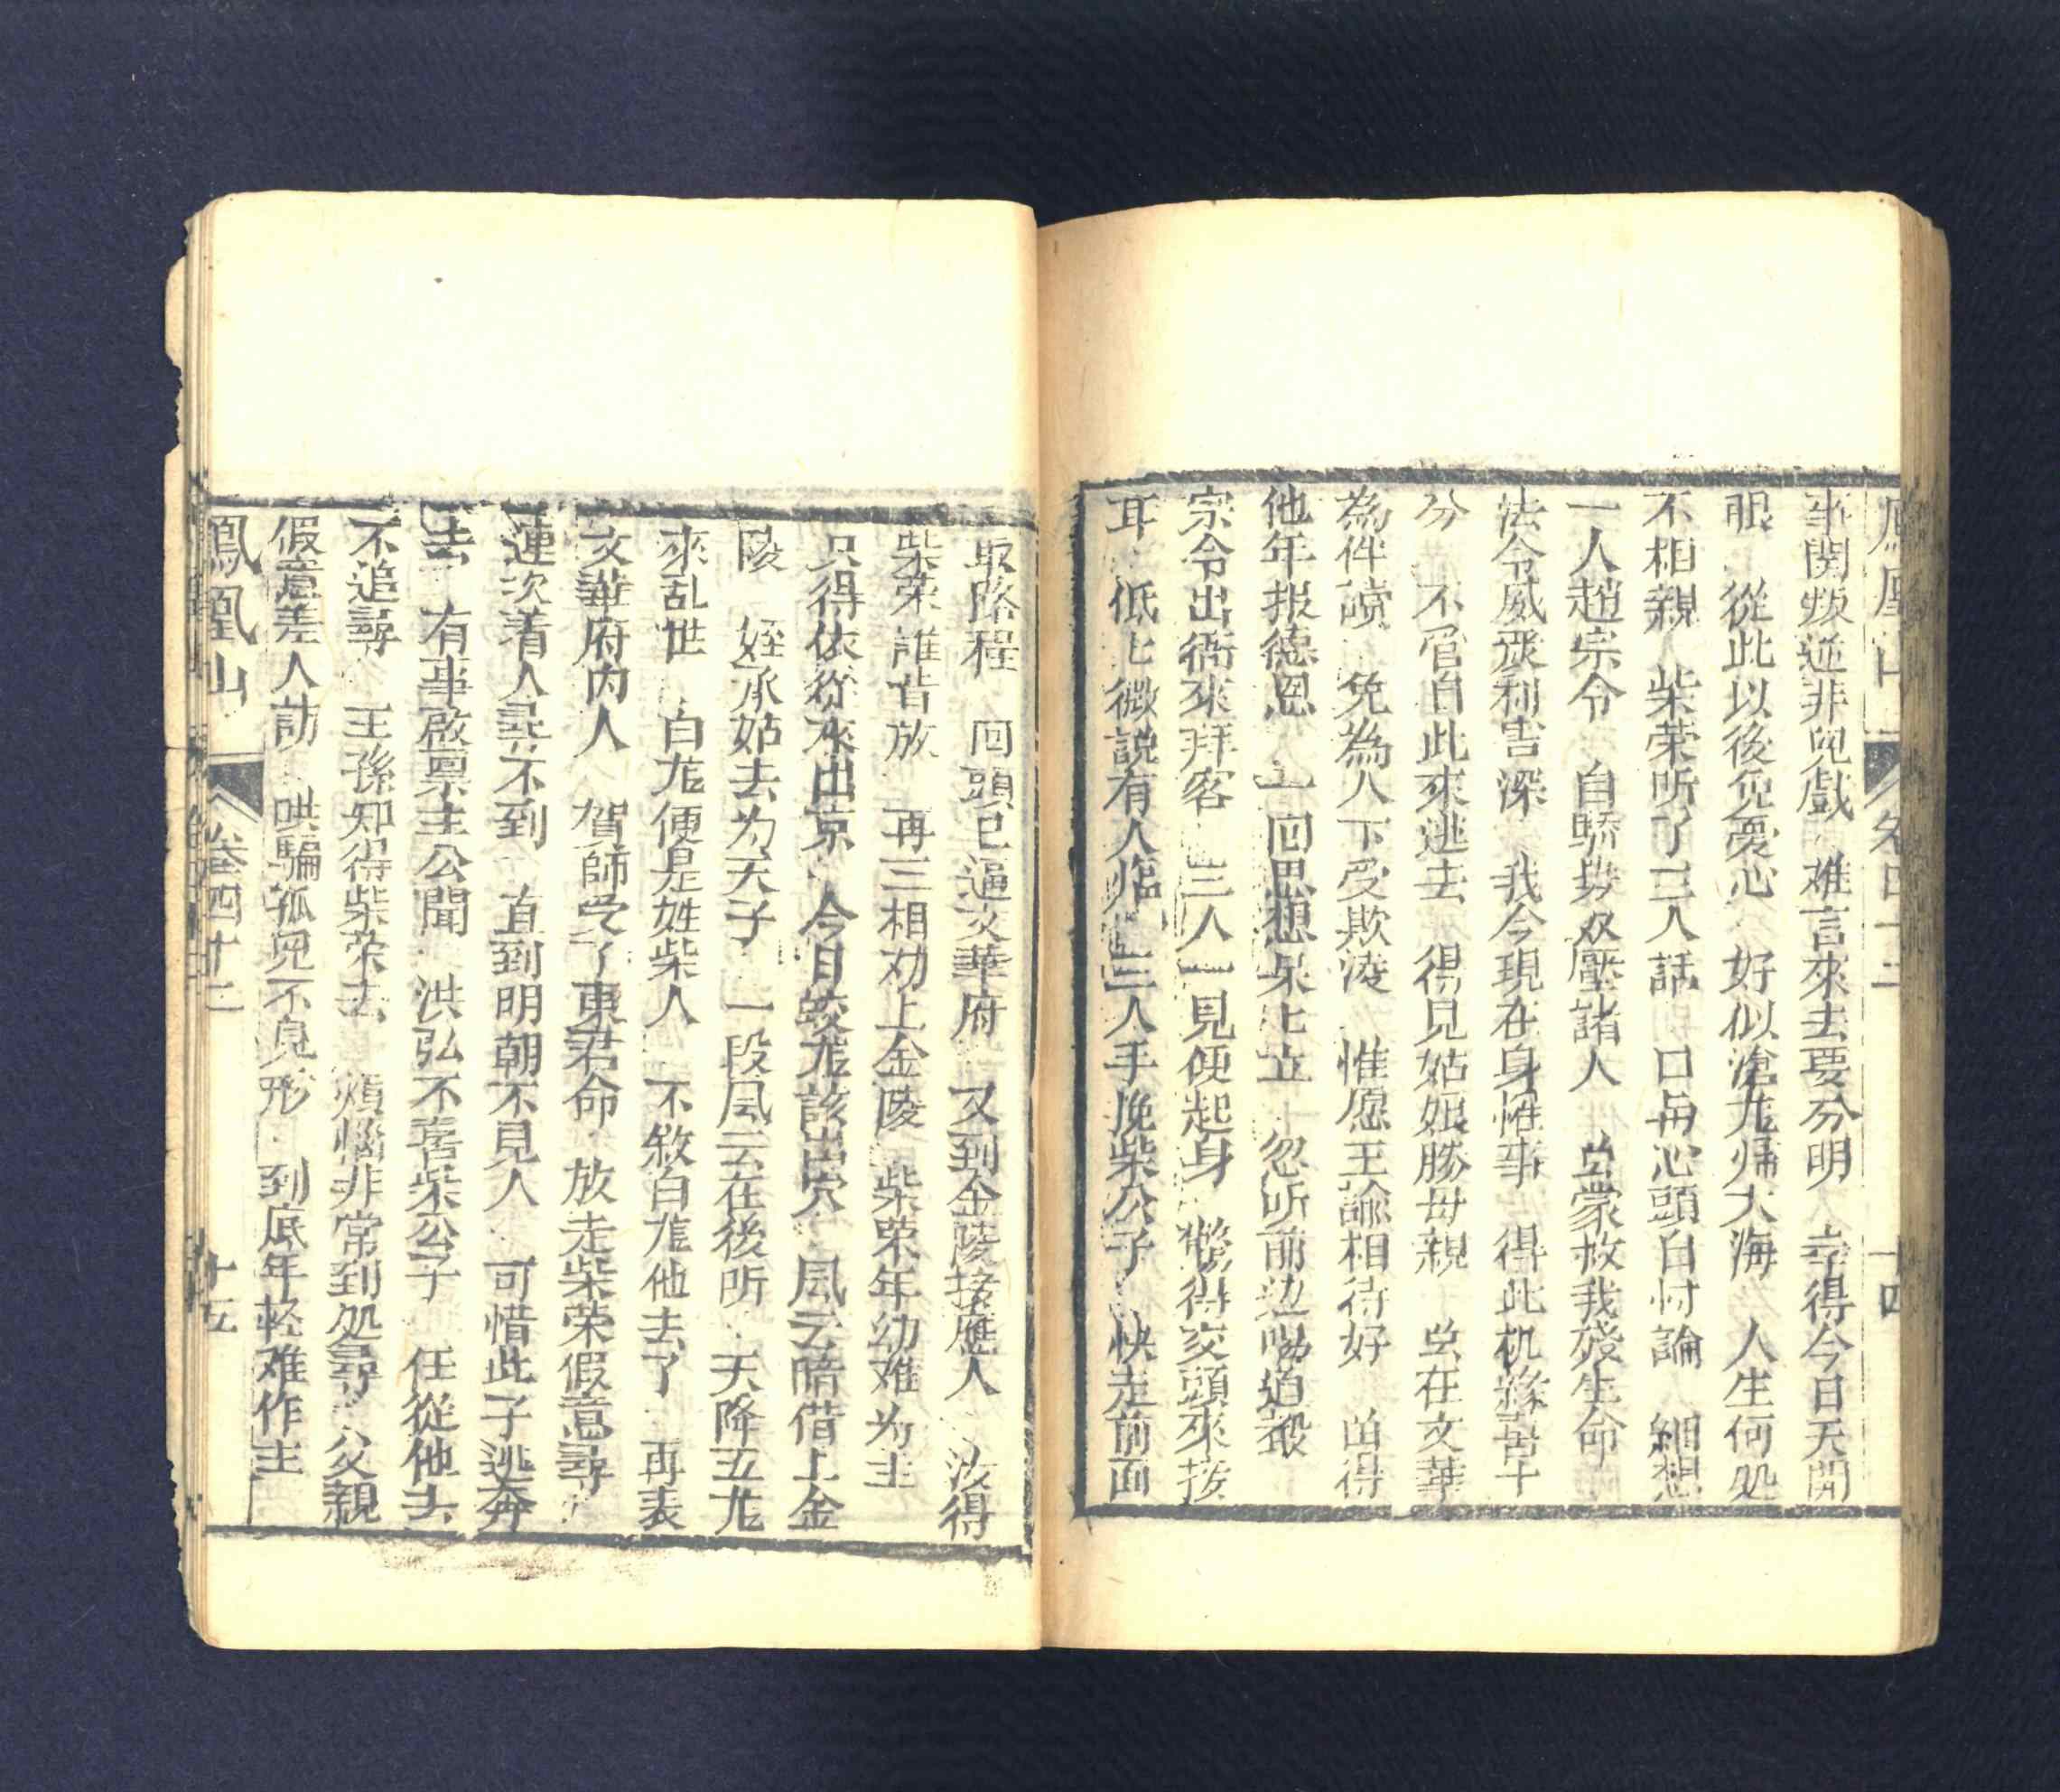 鳳凰山 卷四十二 十四
事関叛逆非兒戲 难言來去要分明 幸得今日天開
眼 從此以後免憂心 好似滄龙归大海 人生何処
不相親 柴荣听了三人話 口与心頭自忖論 細想
一人趙宗令 自驕 双壓諸人 虽蒙救我殘生命
法令威嚴利害深 我今現在身惟事 得此机緣喜十
分 不官自此來逃去 得見姑娘勝母親 虽在文華
為伴讀 免為人下受欺凌 惟愿王諭相待好 曲得
他年报德恩 一回思想呆匕立 忽听前边喝道声
宗令出衙來拜客 三人一見便起身 慌得交頭來接
耳 低匕微説有人臨 三人手挽柴公子 快走前面
取路程 回頭已逼文華府 又到金陵接應人 沒得
柴荣誰肯放 再三相劝上金陵 柴荣年幼难为主
只得依從來出京 今日蛟龙該出穴 風云暗借上金
陵 姪承姑去为天子 一段風云在後听 天降五龙
來乱世 白龙便是姓柴人 不敘白龙他去了 再表
文華府內人 賀師受了東君命 放走柴荣假意尋
連次着人尋不到 直到明朝不見人 可惜此子逃奔
去 有事啟稟主公聞 洪弘不喜柴公子 任從他去
不追尋 王孫知得柴荣去 煩惱非常到処尋 父親
假意差人訪 哄騙孤兒不見形 到底年軽难作主
鳳凰山 卷四十二 十五